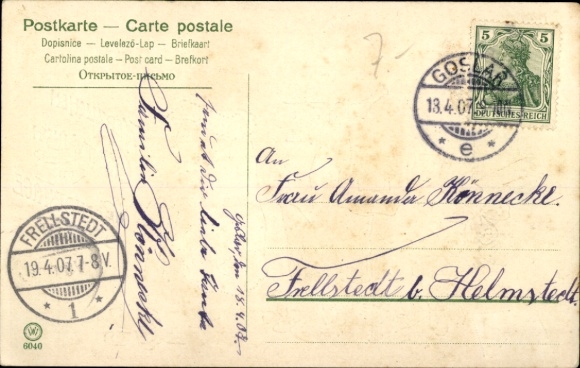 Postkarte — Carte postale
Dopisnice — Levelező-Lap — Briefkaart
Cartolina postale — Post card — Brefkort
Открытое письмо
7-
5 5
DEUTSCHES REICH
GOSLAR
18.4.07
* e *
An
Frau Amanda Könnecke.
Frellstedt b. Helmstedt.
sendet die liebe Tante
Familie Könnecke
Goslar, den 18.4.07.
FRELLSTEDT
19.4.07. 7-8V.
* 1 *
6040